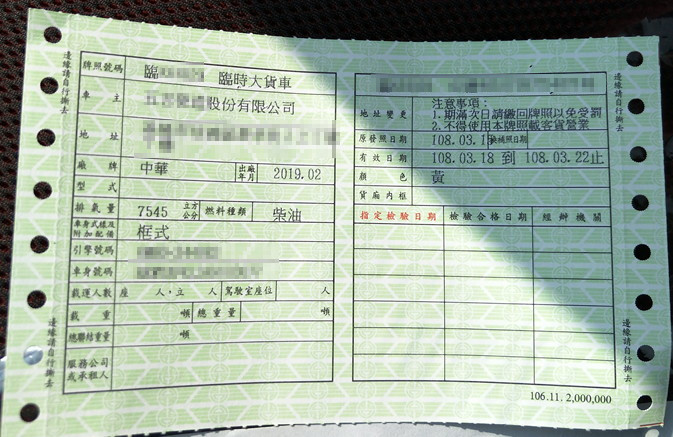 邊緣請自行撕去
牌照號碼 臨 臨時大貨車
車主 股份有限公司
地址
廠牌 中華 出廠年月 2019.02
型式
排氣量 7545 立方公分 燃料種類 柴油
車身式樣及附加配備 框式
引擎號碼
車身號碼
載運人數 座 人,立 人 駕駛室座位 人
載重 噸 總重量 噸
總聯結重量 噸
服務公司或承租人
邊緣請自行撕去
注意事項:
地址變更 1.期滿次日請繳回牌照以免受罰
2.不得使用本牌照載客貨營業
原發照日期 108.03.1 換補照日期
有效日期 108.03.18 到 108.03.22止
顏色 黃
貨廂內框
指定檢驗日期 檢驗合格日期 經辦機關
邊緣請自行撕去
邊緣請自行撕去
106.11. 2,000,000